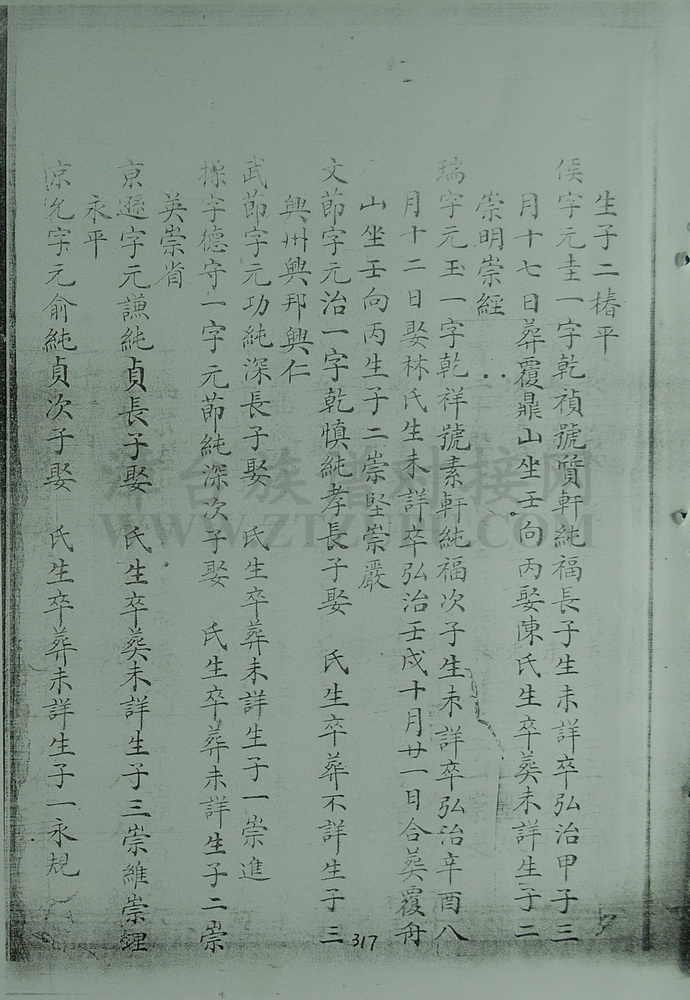 生子二椿平
侯字元圭一字乾禎號質軒純福長子生未詳卒弘治甲子三
月十七日葬覆鼎山坐壬向丙娶陳氏生卒葬未詳生子二
崇明崇經
瑞字元玉一字乾祥號素軒純福次子生未詳卒弘治辛酉八
月十二日娶林氏生未詳卒弘治壬戌十月廿一日合葬覆舟
山坐壬向丙生子二崇堅崇嚴
文節字元治一字乾慎純孝長子娶 氏生卒葬不詳生子三
興州興邦興仁
武節字元功純深長子娶 氏生卒葬未詳生子一崇進
操字德守一字元節純深次子娶 氏生卒葬未詳生子二崇
英崇省
京遜字元謙純貞長子娶 氏生卒葬未詳生子三崇維崇鋰
永平
京允字元俞純貞次子娶 氏生卒葬未詳生子一永規
317
WWW.ZTZUPU.COM